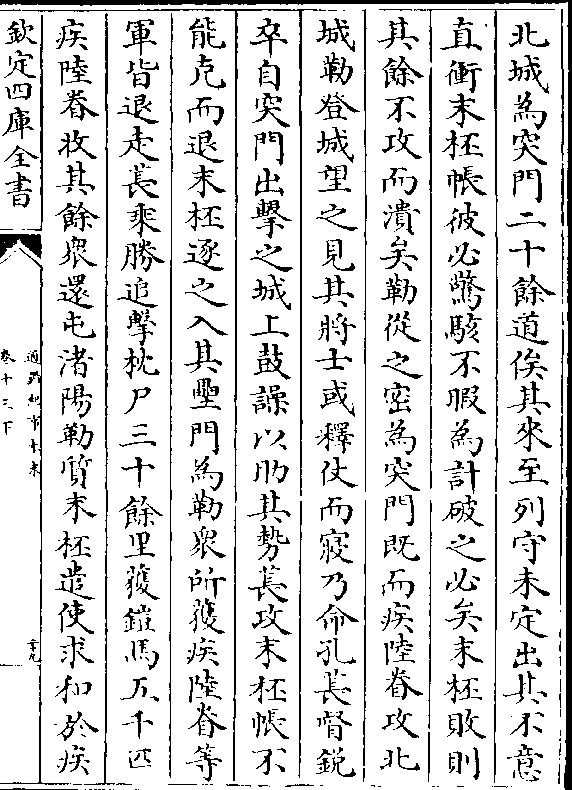 北城為突門二十餘道俟其來至列守未定出其不意
直衝末柸帳彼必驚駭不暇為計破之必矣末柸敗則
其餘不攻而潰矣勒從之密為突門既而疾陸眷攻北
城勒登城望之見其將士或釋仗而寢乃命孔萇督銳
卒自突門出擊之城上鼓譟以助其勢萇攻末柸帳不
能克而退末柸逐之入其壘門為勒衆所獲疾陸眷等
軍皆退走萇乘勝追擊枕尸三十餘里獲鎧馬五千匹
疾陸眷收其餘衆還屯渚陽勒質末柸遣使求和於疾
欽定四庫全書
通鑑紀事本末
卷十三下